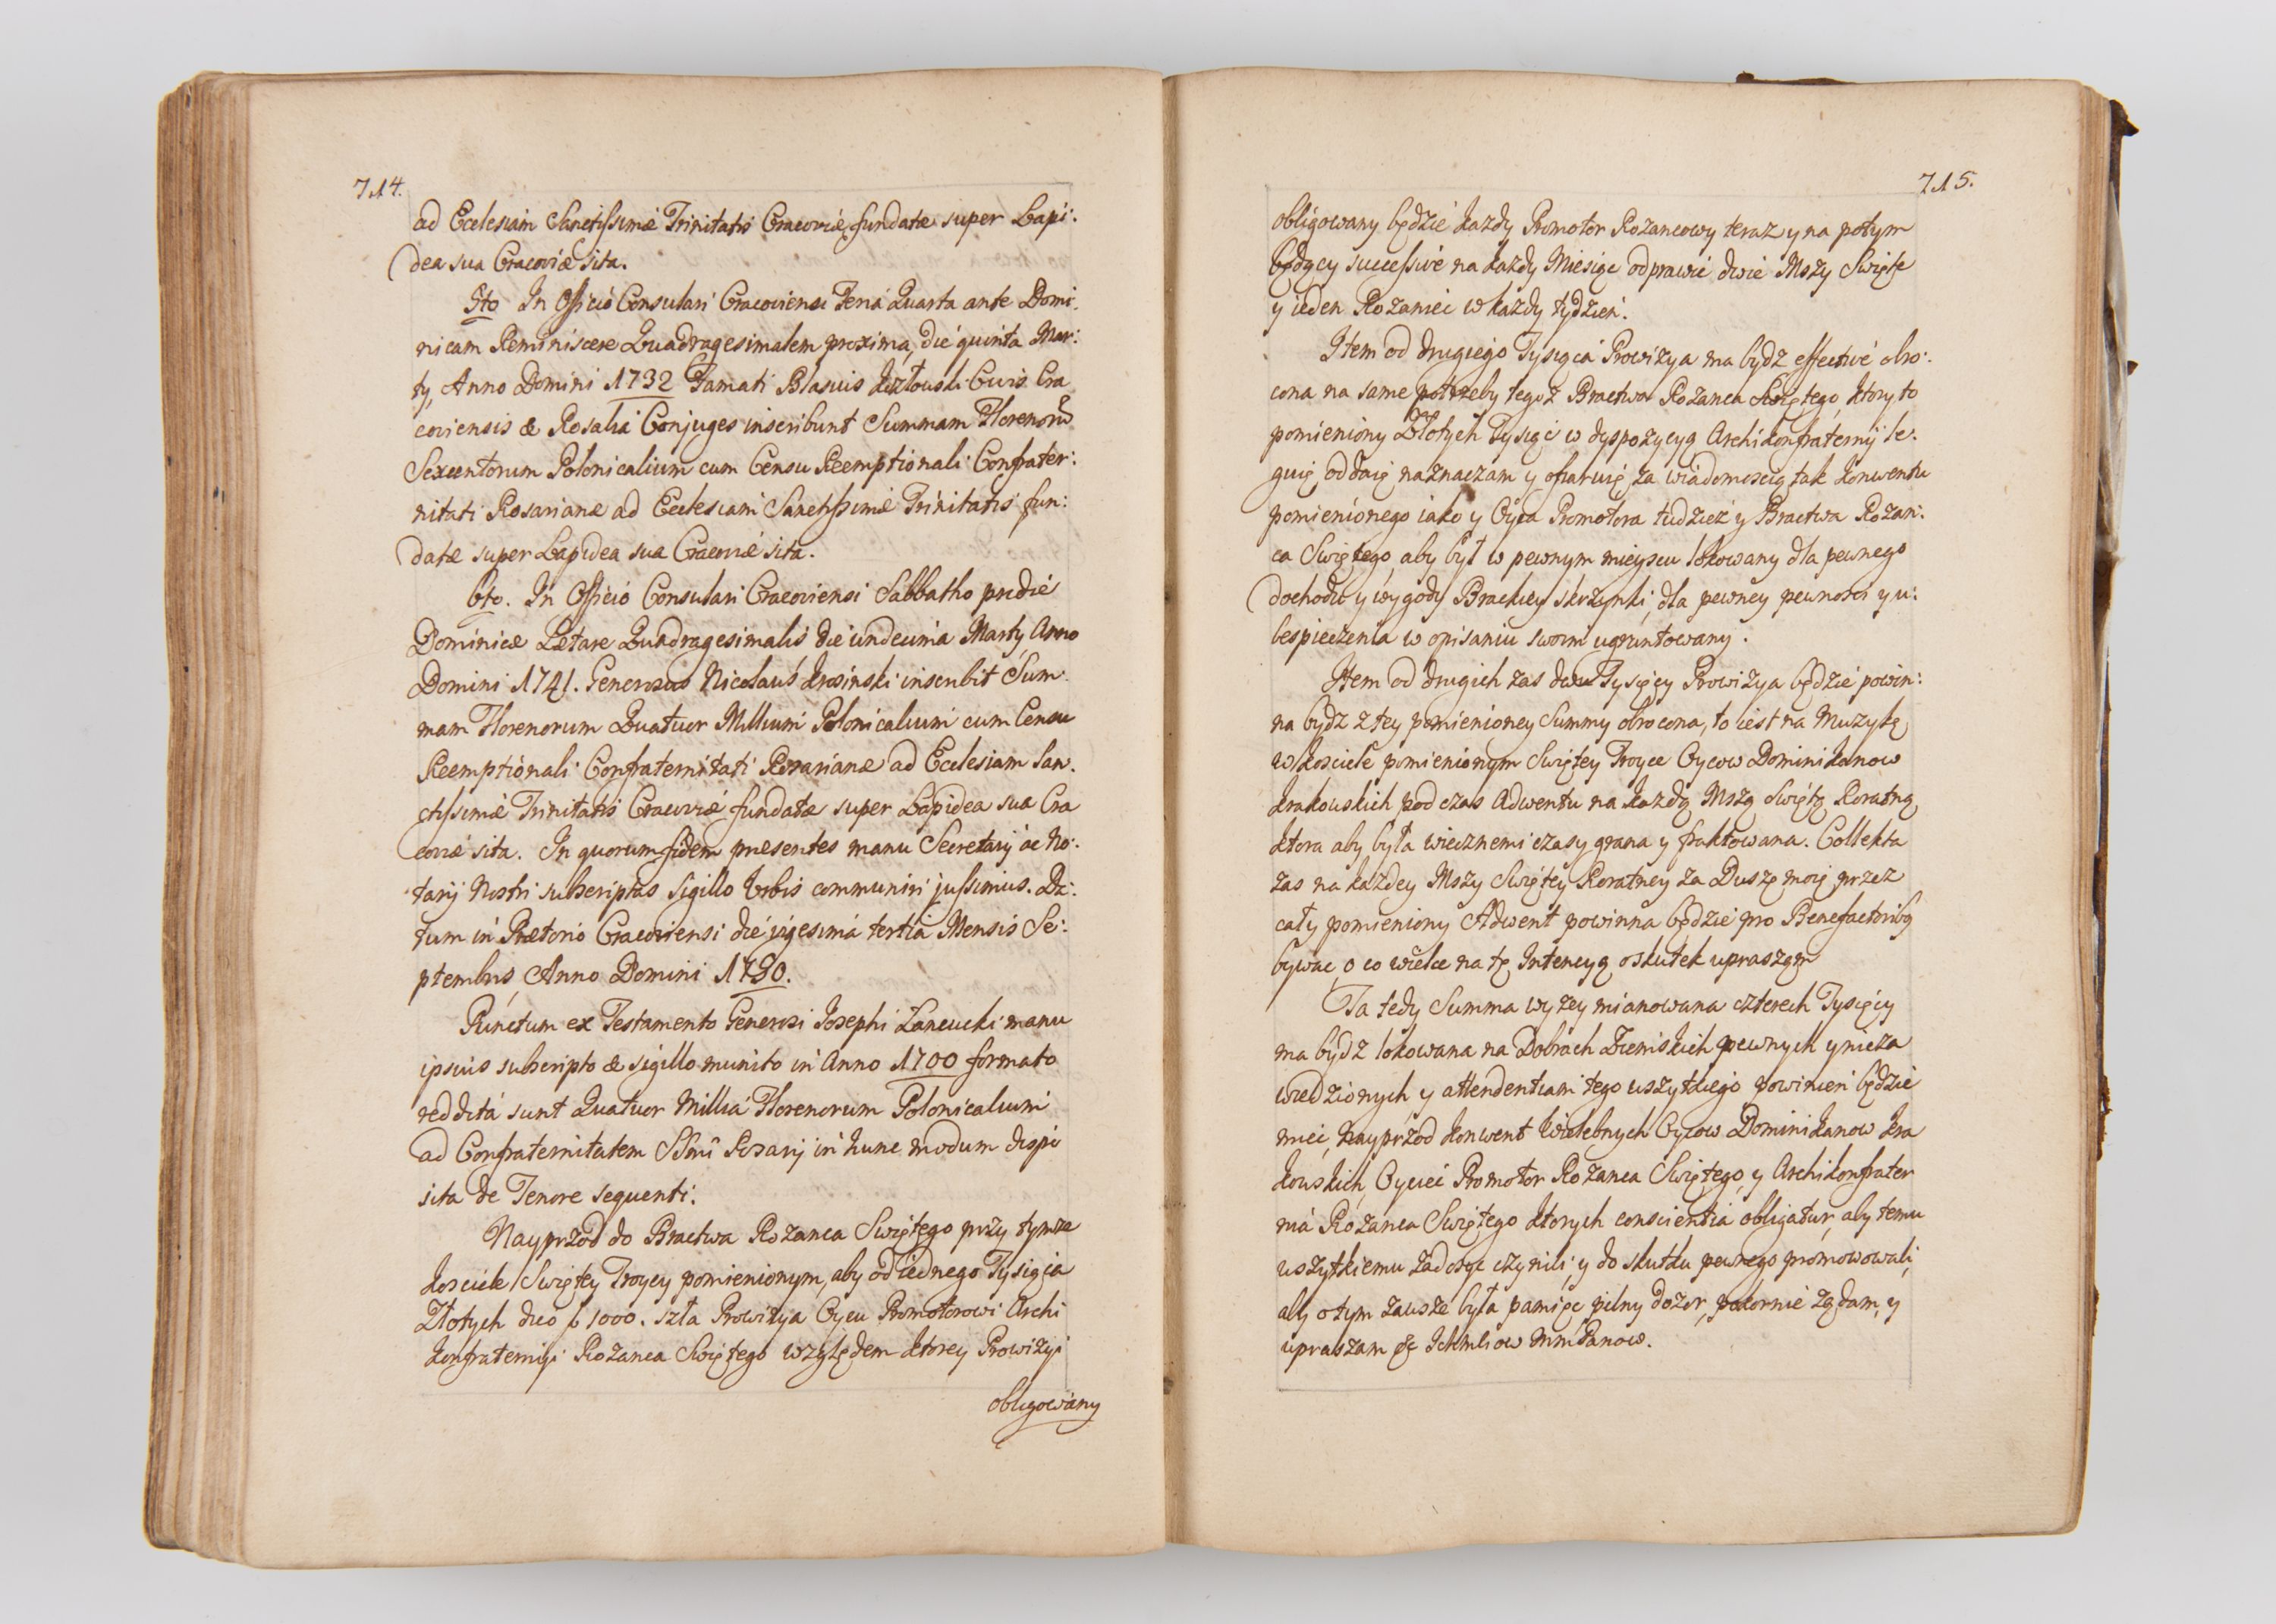 714.
ad Ecclesiam Sanctissimæ Trinitatis Cracoviæ fundatæ super Lapi:
dea sua Cracoviæ sita.
5to In Officio Consulari Cracoviensi Feria Quarta ante Domi:
nicam Reminiscere Quadragesimalem proxima, die quinta Mar:
tij, Anno Domini 1732 Famati Blasius Kozłouski Civis Cra
coviensis & Rosalia Conjuges inscribunt Summam Florenorũ
Sexcentorum Polonicalium cum Censu Reemptionali Confrater:
nitati Rosarianæ ad Ecclesiam Sanctissimæ Trinitatis fun:
datæ super Lapidea sua Cracoviæ sita.
6to. In Officio Consulari Cracoviensi Sabbatho pridie
Dominicæ Lætare Quadragesimalis die undecima Martij Anno
Domini 1741. Generosus Nicolaus Krosinski inscribit Sum:
mam Florenorum Quatuor Millium Polonicalium cum Censu
Reemptionali Confraternitati Rosarianæ ad Ecclesiam San:
ctissimæ Trinitatis Cracoviæ fundatæ super Lapidea sua Cra
coviæ sita. In quorum fidem præsentes manu Secretarij ac No:
tarij Nostri subscriptas Sigillo Urbis communiri jussimus. Da:
tum in Prætorio Cracoviensi die vigesima tertia Mensis Se:
ptembris, Anno Domini 1790.
Punctum ex Testamento Generosi Josephi Łancucki manu
ipsius subscripto & sigillo munito in Anno 1700 formato
reddita sunt Quatuor Millia Florenorum Polonicalium
ad Confraternitatem SSmi Rosarij in hunc modum dispo
sita de Tenore sequenti.
Nayprzod do Bractwa Rozanca Swiętego przy tymze
kosciele Swiętey Troycy pomienionym, aby od iednego Tysiąca
Złotych dico f 1000. szła Prowizya Oycu Promotorowi Archi
konfraternij Rozanca Swiętego względem ktorey Prowizyi
obligowany
715.
obligowany będzie kazdy Promotor Rozancowy teraz y na potym
będący successive na kazdy Miesiąc odprawić dwie Mszy Swięte
y ieden Rozaniec w kazdy tydzień.
Item od drugiego Tysiąca Prowizya ma bydz effective obro:
cona na same potrzeby tegoz Bractwa Rozanca Swiętego, ktory to
pomieniony Złotych Tysiąc w dyspozycyą Archikonfraternij le:
guię oddaię naznaczam y ofiaruię za wiadomoscią tak Konwentu
pomienionego iako y Oyca Promotora tudziez y Bractwa Rozan:
ca Swiętego, aby był w pewnym mieyscu lokowany dla pewnego
dochodu y wygody Brackiey skrzynki, dla pewney pewnosci y u:
bespieczenia w opisaniu swoim ugruntowany.
Item od drugich zas dwu Tysięcy Prowizya będzie powin:
na bydz z tey pomienioney Summy obrocona, to iest na Muzykę
w kosciele pomienionym Swiętey Troyce Oycow Dominikanow
Krakouskich podczas Adwentu na kazdą Mszą Swiętą Roratną
ktora aby była wiecznemi czasy grana y fraktowana. Collekta
zas na kazdey Mszy Swiętey Roratney za Duszę moię przez
cały pomieniony Adwent powinna będzie pro Benefactoribq
bywac, o co wielce na tę Intencyą o skutek upraszam
Ta tedy Summa wyzey mianowana czterech Tysięcy
ma bydz lokowana na Dobrach Ziemskich pewnych y nieza
wiedzionych y attendentiam tego uszytkiego powinien będzie
miec, nayprzod Konwent Wielebnych Oycow Dominikanow Kra
kouskich, Oyciec Promotor Rozanca Swiętego, y Archikonfrater
nia Rozanca Swiętego ktorych conscientia obligatur, aby temu
uszytkiemu zadosyc czynili, y do skutku pewnego promowowali,
aby o tym zausze była pamięc pilny dozor, pokornie ządam, y
upraszam &c Ichmliow MmPanow.